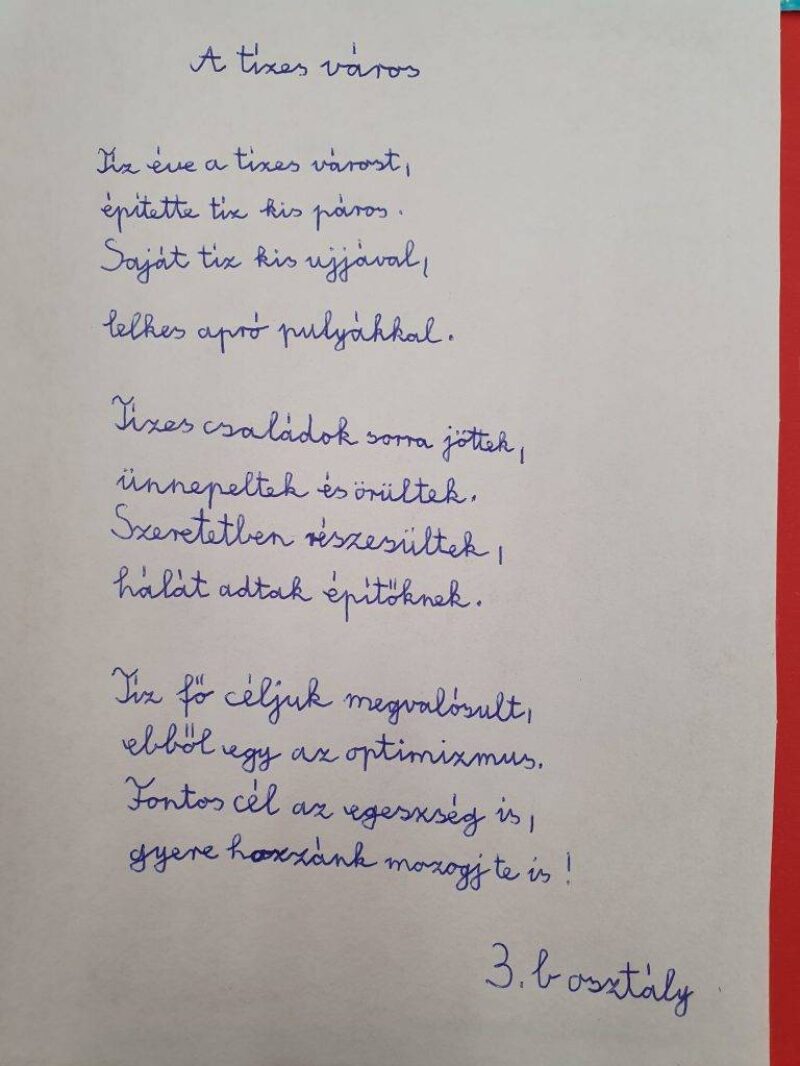 A tízes város
Tíz éve a tízes várost,
építette tíz kis páros.
Saját tíz kis ujjával,
lelkes apró pulyákkal.
Tízes családok sorra jöttek,
ünnepeltek és örültek.
Szeretetben részesültek,
hálát adtak építőknek.
Tíz fő céljuk megvalósult,
ebből egy az optimizmus.
Fontos cél az egeszség is,
gyere hozzánk mozogj te is!
3. b osztály